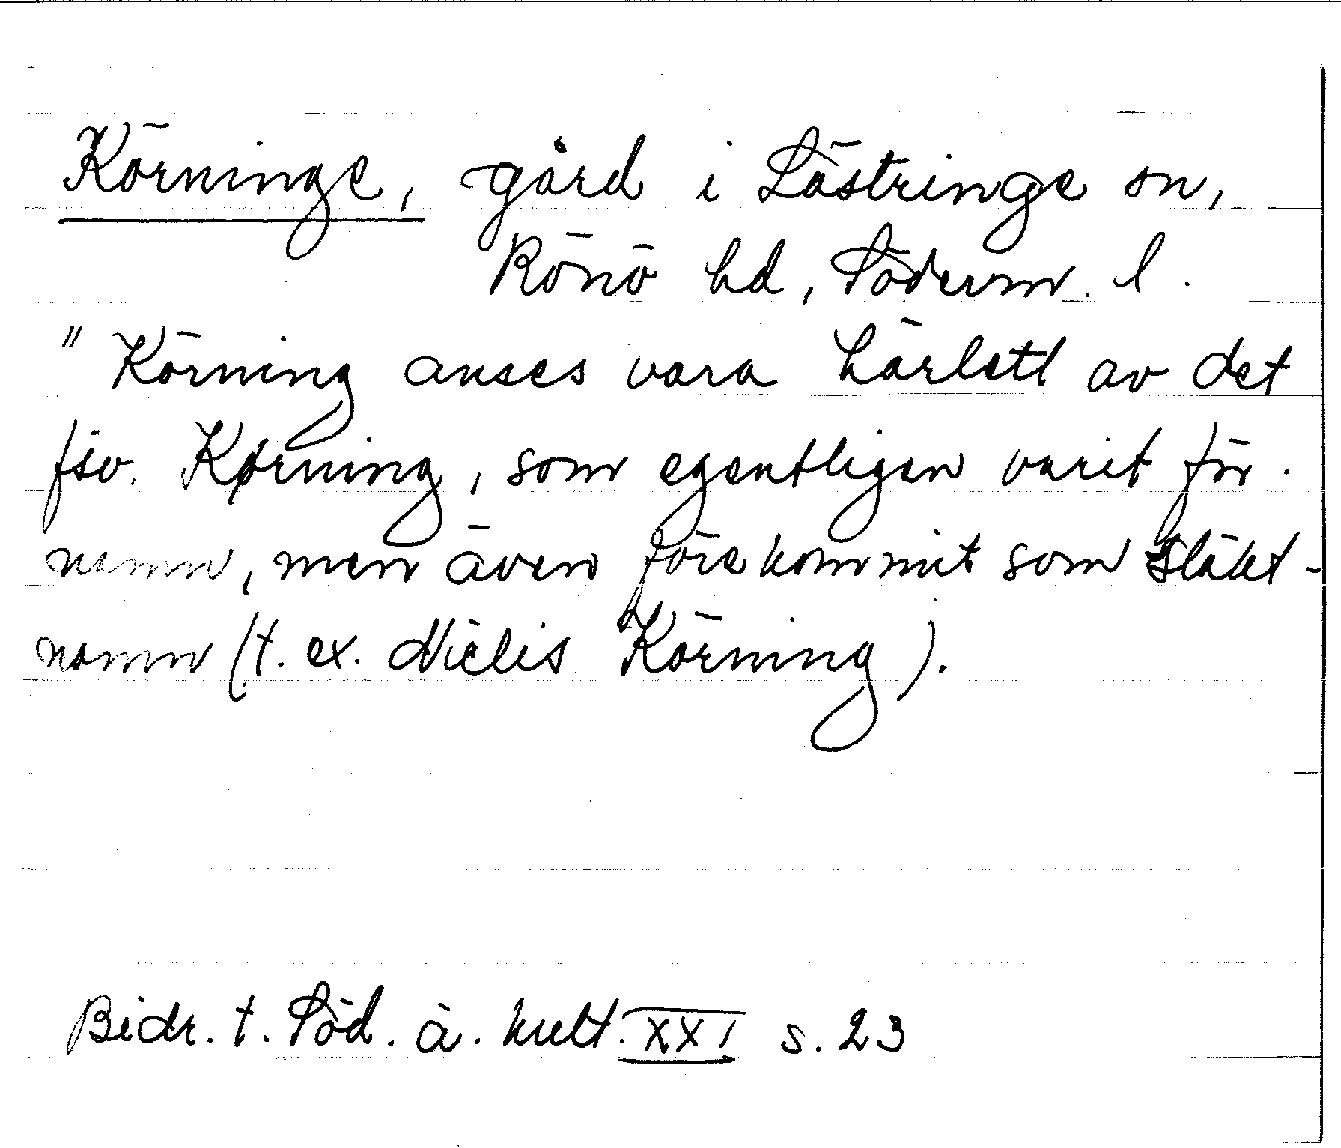 Körninge, gård i Lästringe sn,
Rönö hd, Söderm. l.
" Körning anses vara härlett av det
fsv. Kørning, som egentligen varit för-
namn, men även förekommit som släkt-
namn (t. ex. Niclis Körning).
Bidr. t. Söd. ä. kult. XXI s. 23